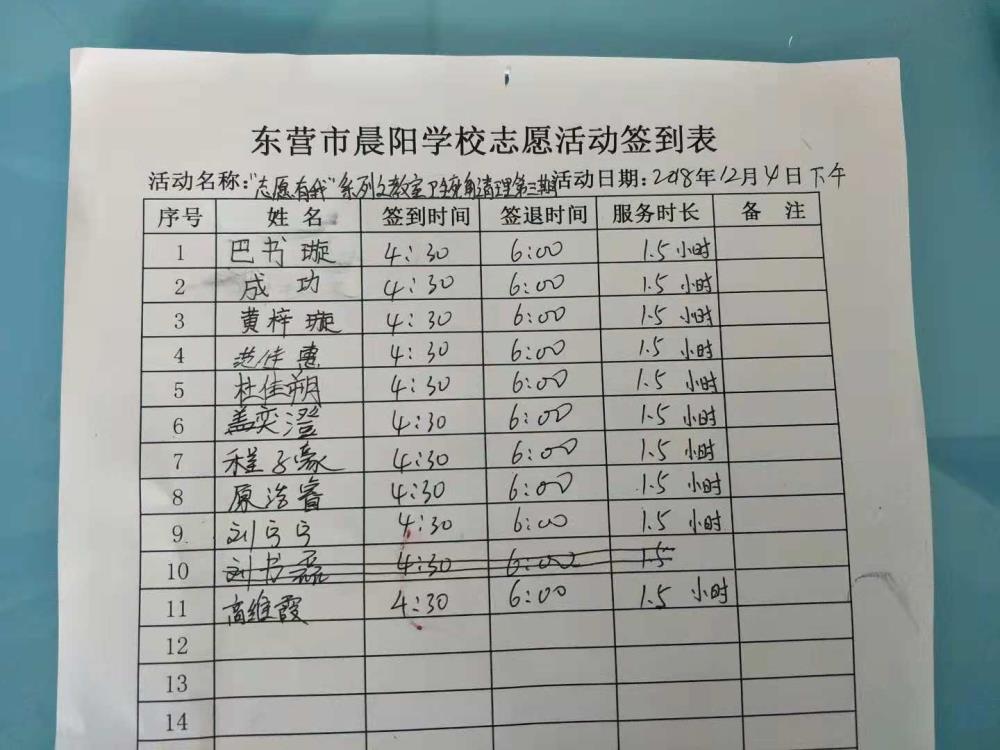 东营市晨阳学校志愿活动签到表
活动名称:"志愿有我"系列之教室卫生死角清理第三期 活动日期:2018年12月4日下午
序号 姓名 签到时间 签退时间 服务时长 备注
1 巴书璇 4:30 6:00 1.5小时
2 成功 4:30 6:00 1.5小时
3 黄梓璇 4:30 6:00 1.5小时
4 范佳惠 4:30 6:00 1.5小时
5 杜佳朔 4:30 6:00 1.5小时
6 盖奕澄 4:30 6:00 1.5小时
7 程子豪 4:30 6:00 1.5小时
8 原浩睿 4:30 6:00 1.5小时
9 刘宁宁 4:30 6:00 1.5小时
10 刘书磊 4:30 6:00 1.5
11 高维霞 4:30 6:00 1.5小时
12
13
14